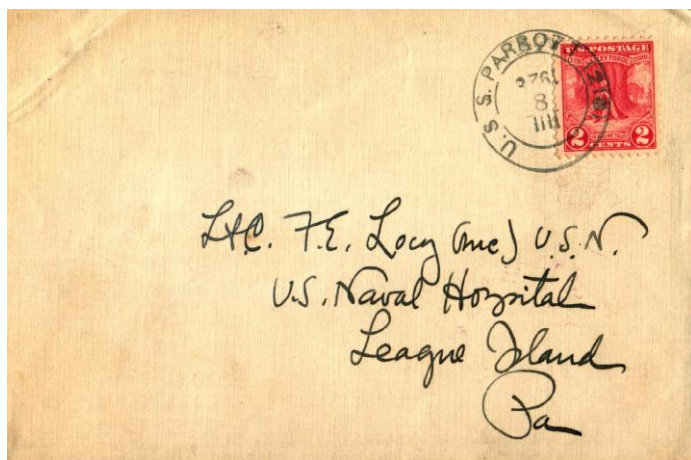 U.S.S. PARROTT
U.S. POSTAGE
2 CENTS 2
Lt.C. F.E. Locy (mc) U.S.N.
U.S. Naval Hospital
League Island
Pa